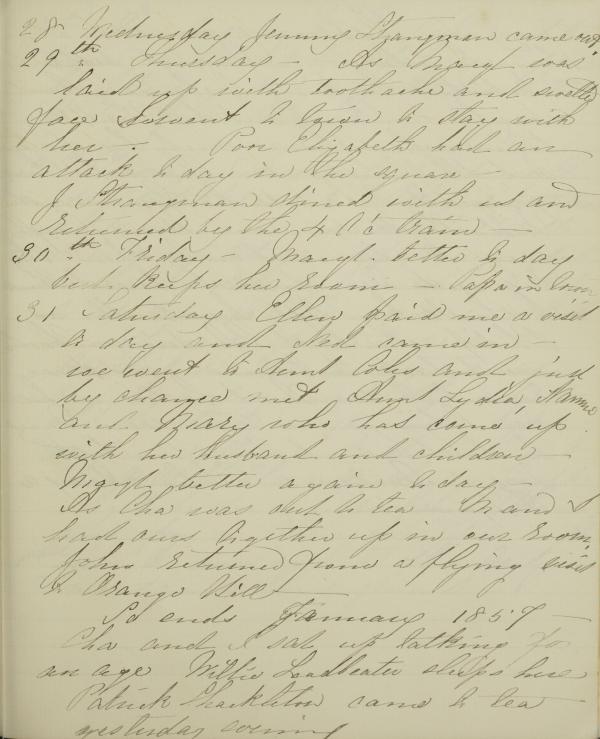 28 Wednesday Jenny Strangman came out
29th Thursday - As Margt was
laid up with toothache and swelled
face I went to town to stay with
her - Poor Elizabeth had an
attack to day in the square -
J Strangman dined with us and
returned by the 4 O'c train -
30th Friday - Margt. better to day
but keeps her room - Papa in town
31 Saturday Ellen paid me a visit
to day and Ned came in -
we went to Aunt Coles and just
by chance met Aunt Lydia, Hannah
and Mary who has come up
with her husband and children -
Margt better again to day -
As Cha was out to tea M and I
had ours together up in our room
John returned from a flying visit
to Orange Hill
So ends January 1857 -
Cha and I sat up talking for
an age Willie Leadbeater sleeps here
Patrick Shackleton came to tea
yesterday evening